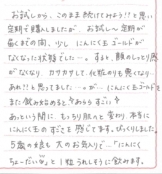 お試しから、このまま続けてみよう!!と思い
定期で購入しましたが、お試し〜定期が
届くまでの間、少し にんにく玉ゴールドが
なくなった状態でした…。すると、顔のしっとり感
がなくなり、カサカサして化粧のりも悪くなり…
あれ!?と思ってました…。が、にんにく玉ゴールドを
また飲み始めると、今あらら すごい!!
あっという間に、もっちり肌へと変わり、本当に
にんにく玉のすごさを感じてます。びっくりしました。
5歳の娘も大のお気入りで…"にんにく
ちょーだい"と1粒うれしそうに飲みます。